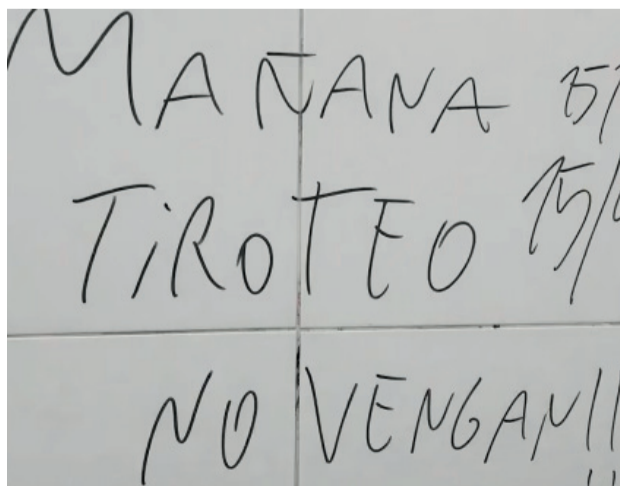 MAÑANA 15/
TiROTEO 15/
NO VENGAN!!